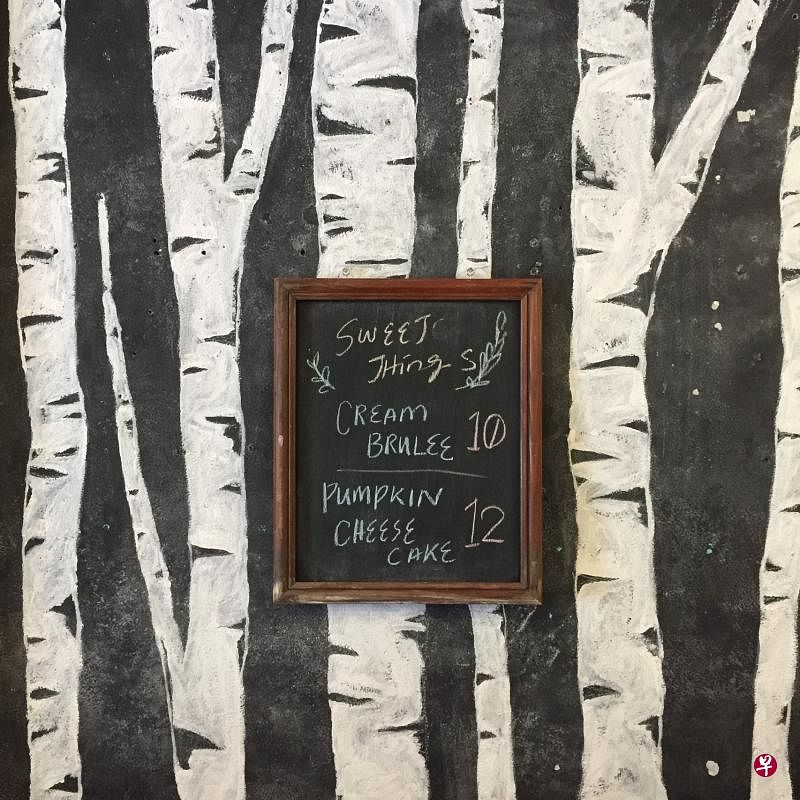 SWEET
THING S
CREAM
BRULEE 10
PUMPKIN
CHEESE
CAKE 12
早